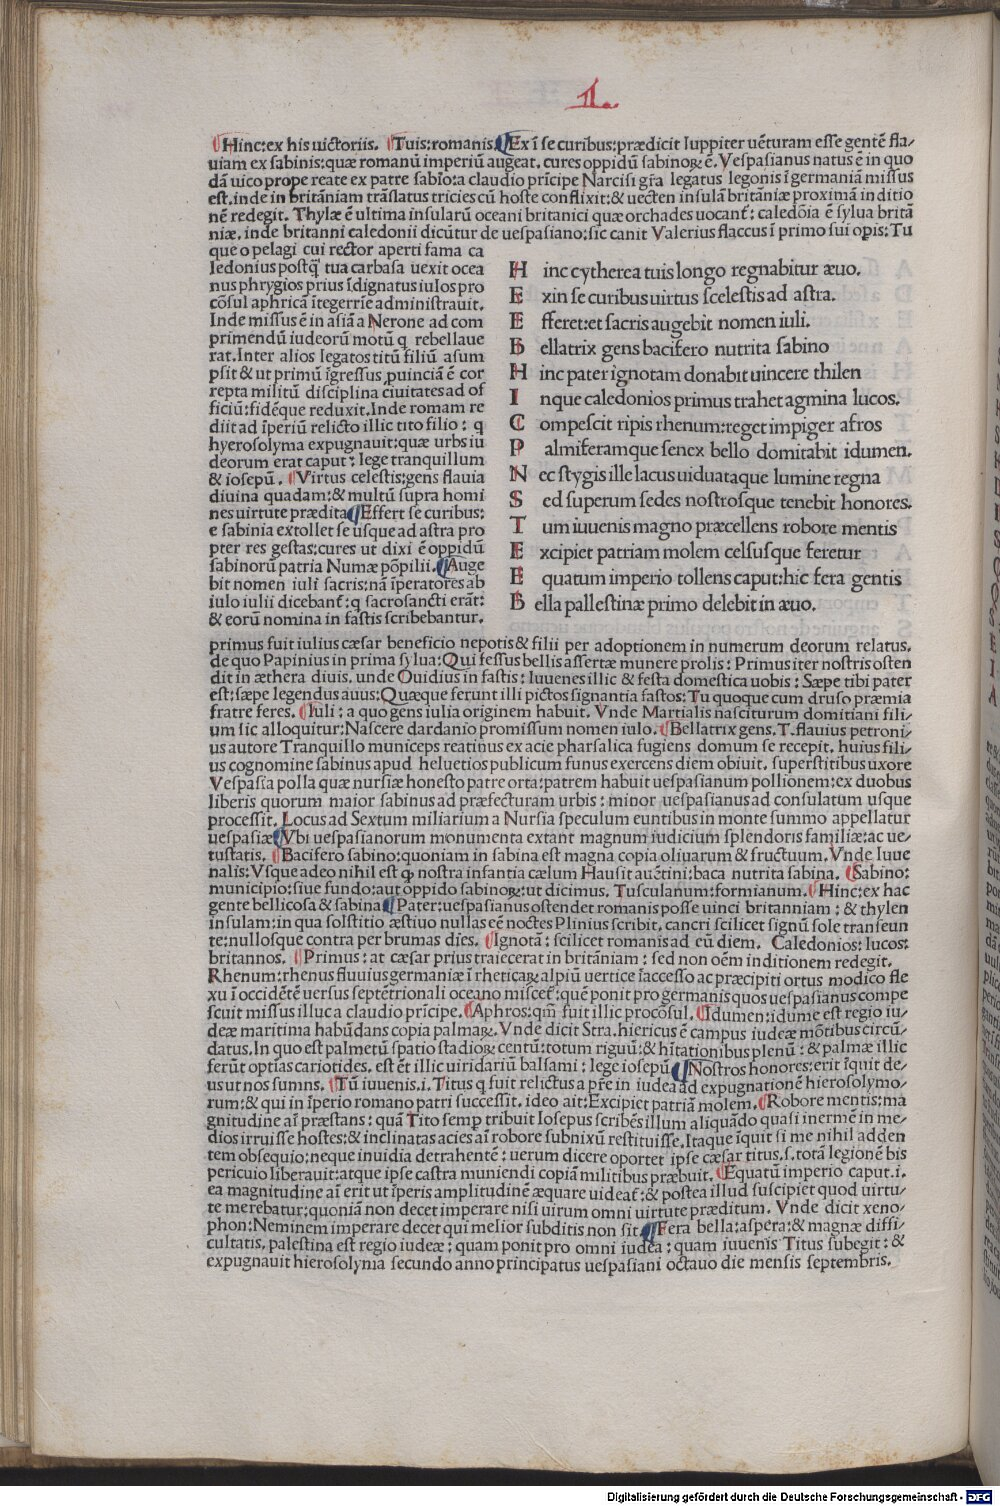 ¶Hinc:ex his uictoriis. ¶Tuis:romanis.¶Ex ī se curibus:prædicit Iuppiter uēturam esse gentē fla/
uiam ex sabinis:quæ romanū imperiū augeat. cures oppidū sabinoꝝ ē. Vespasianus natus ē in quo
dā uico prope reate ex patre sabīo:a claudio prīcipe Narcisi gr̄a legatus legonis ī germaniā missus
est.inde in britāniam trāslatus tricies cū hoste conflixit:& uecten insulā britāniæ proximā in ditio
nē redegit. Thylæ ē ultima insularū oceani britanici quæ orchades uocant̄: caledōia ē sylua britā
niæ.inde britanni caledonii dicūtur de uespasiano:sic canit Valerius flaccus ī primo sui opis:Tu
que o pelagi cui rector aperti fama ca
ledonius postq̄ tua carbasa uexit ocea
nus phrygios prius īdignatus iulos pro
cōsul aphricā ītegerrīe administrauit.
Inde missus ē in asiā a Nerone ad com
primendū iudeorū motū q rebellaue
rat.Inter alios legatos titū filiū asum
psit & ut primū īgressus ꝓuinciā ē cor
repta militū disciplina ciuitates ad of
ficiū:fidēque reduxit.Inde romam re
diit ad īperiū relicto illic tito filio: q
hyerosolyma expugnauit:quæ urbs iu
deorum erat caput: lege tranquillum
& iosepū. ¶Virtus celestis:gens flauia
diuina quadam:& multū supra homi
nes uirtute prædita¶Effert se curibus:
e sabinia extollet se usque ad astra pro
pter res gestas:cures ut dixi ē oppidū
sabinorū patria Numæ pōpilii.¶Auge
bit nomen iuli sacris:nā īperatores ab
iulo iulii dicebant̄: q sacrosancti erāt:
& eorū nomina in fastis scribebantur.
H inc cytherea tuis longo regnabitur æuo.
E xin se curibus uirtus scelestis ad astra.
E fferet:et sacris augebit nomen iuli.
B ellatrix gens bacifero nutrita sabino
H inc pater ignotam donabit uincere thilen
I nque caledonios primus trahet agmina lucos.
C ompescit ripis rhenum:reget impiger afros
P almiferamque senex bello domitabit idumen.
N ec stygis ille lacus uiduataque lumine regna
S ed superum sedes nostrosque tenebit honores.
T um iuuenis magno præcellens robore mentis
E xcipiet patriam molem celsusque feretur
E quatum imperio tollens caput:hic fera gentis
B ella pallestinæ primo delebit in æuo.
primus fuit iulius cæsar beneficio nepotis & filii per adoptionem in numerum deorum relatus.
de quo Papinius in prima sylua:Qui fessus bellis assertæ munere prolis: Primus iter nostris osten
dit in æthera diuis. unde Ouidius in fastis: Iuuenes illic & festa domestica uobis: Sæpe tibi pater
est:sæpe legendus auus:Quæque ferunt illi pictos signantia fastos: Tu quoque cum druso præmia
fratre feres. ¶Iuli: a quo gens iulia originem habuit. Vnde Martialis nasciturum domitiani fili/
um sic alloquitur:Nascere dardanio promissum nomen iulo.¶Bellatrix gens. T.flauius petroni/
us autore Tranquillo municeps reatinus ex acie pharsalica fugiens domum se recepit. huius fili/
us cognomine sabinus apud heluetios publicum funus exercens diem obiuit. superstitibus uxore
Vespasia polla quæ nursiæ honesto patre orta:patrem habuit uespasianum pollionem:ex duobus
liberis quorum maior sabinus ad præfecturam urbis: minor uespasianus ad consulatum usque
processit. Locus ad Sextum miliarium a Nursia speculum euntibus in monte summo appellatur
uespasiæ¶Vbi uespasianorum monumenta extant magnum iudicium splendoris familiæ:ac ue/
tustatis. ¶Bacifero sabino:quoniam in sabina est magna copia oliuarum & fructuum. Vnde Iuue
nalis: Vsque adeo nihil est ꝙ nostra infantia cælum Hausit auētini: baca nutrita sabina. ¶Sabino:
municipio:siue fundo:aut oppido sabinoꝝ:ut dicimus. Tusculanum:formianum.¶Hinc:ex hac
gente bellicosa & sabina¶Pater:uespasianus ostendet romanis posse uinci britanniam: & thylen
insulam:in qua solstitio æstiuo nullas eē noctes Plinius scribit. cancri scilicet signū sole transeun
te:nullosque contra per brumas dies. ¶Ignotā: scilicet romanis ad eū diem. Caledonios: lucos:
britannos. ¶Primus: at cæsar prius traiecerat in britāniam: sed non oēm in ditionem redegit.
Rhenum:rhenus fluuius germaniæ ī rheticaꝝ alpiū uertice īaccesso ac præcipiti ortus modico fle
xu ī occidētē uersus septētrionali oceano miscet̄:quē ponit pro germanis quos uespasianus compe
scuit missus illuc a claudio prīcipe.¶Aphros:qm̄ fuit illic procōsul.¶Idumen:idume est regio iu/
deæ maritima habūdans copia palmaꝝ. Vnde dicit Stra.hiericus ē campus iudeæ mōtibus circū/
datus.In quo est palmetū spatio stadioꝝ centū:totum riguū:& hītationibus plenū: & palmæ illic
ferūt optīas cariotides. est ēt illic uiridariū balsami: lege iosepū ¶Nostros honores:erit īquit de/
us ut nos sumus. ¶Tū iuuenis.i.Titus q fuit relictus a pr̄e in iudea ad expugnationē hierosolymo/
rum:& qui in īperio romano patri successit. ideo ait:Excipiet patriā molem.¶Robore mentis:ma
gnitudine aī præstans: quā Tito semp̄ tribuit Iosepus scribēs illum aliquādo quasi inermē in me/
dios irruisse hostes:& inclinatas acies aī robore subnixū restituisse.Itaque īquit si me nihil adden
tem obsequio:neque inuidia detrahentē: uerum dicere oportet ipse cæsar titus.s.totā legionē bis
periculo liberauit:atque ipse castra muniendi copiā militibus præbuit. ¶Equatū imperio caput.i.
ea magnitudine aī erit ut īperis amplitudinē æquare uideat̄:& postea illud suscipiet quod uirtu/
te merebatur:quoniā non decet imperare nisi uirum omni uirtute præditum. Vnde dicit xeno/
phon:Neminem imperare decet qui melior subditis non sit.¶Fera bella:aspera:& magnæ diffi/
cultatis. palestina est regio iudeæ: quam ponit pro omni iudea: quam iuuenis Titus subegit: &
expugnauit hierosolynia secundo anno principatus uespasiani octauo die mensis septembris.
Digitalisierung gefördert durch die Deutsche Forschungsgemeinschaft - DFG